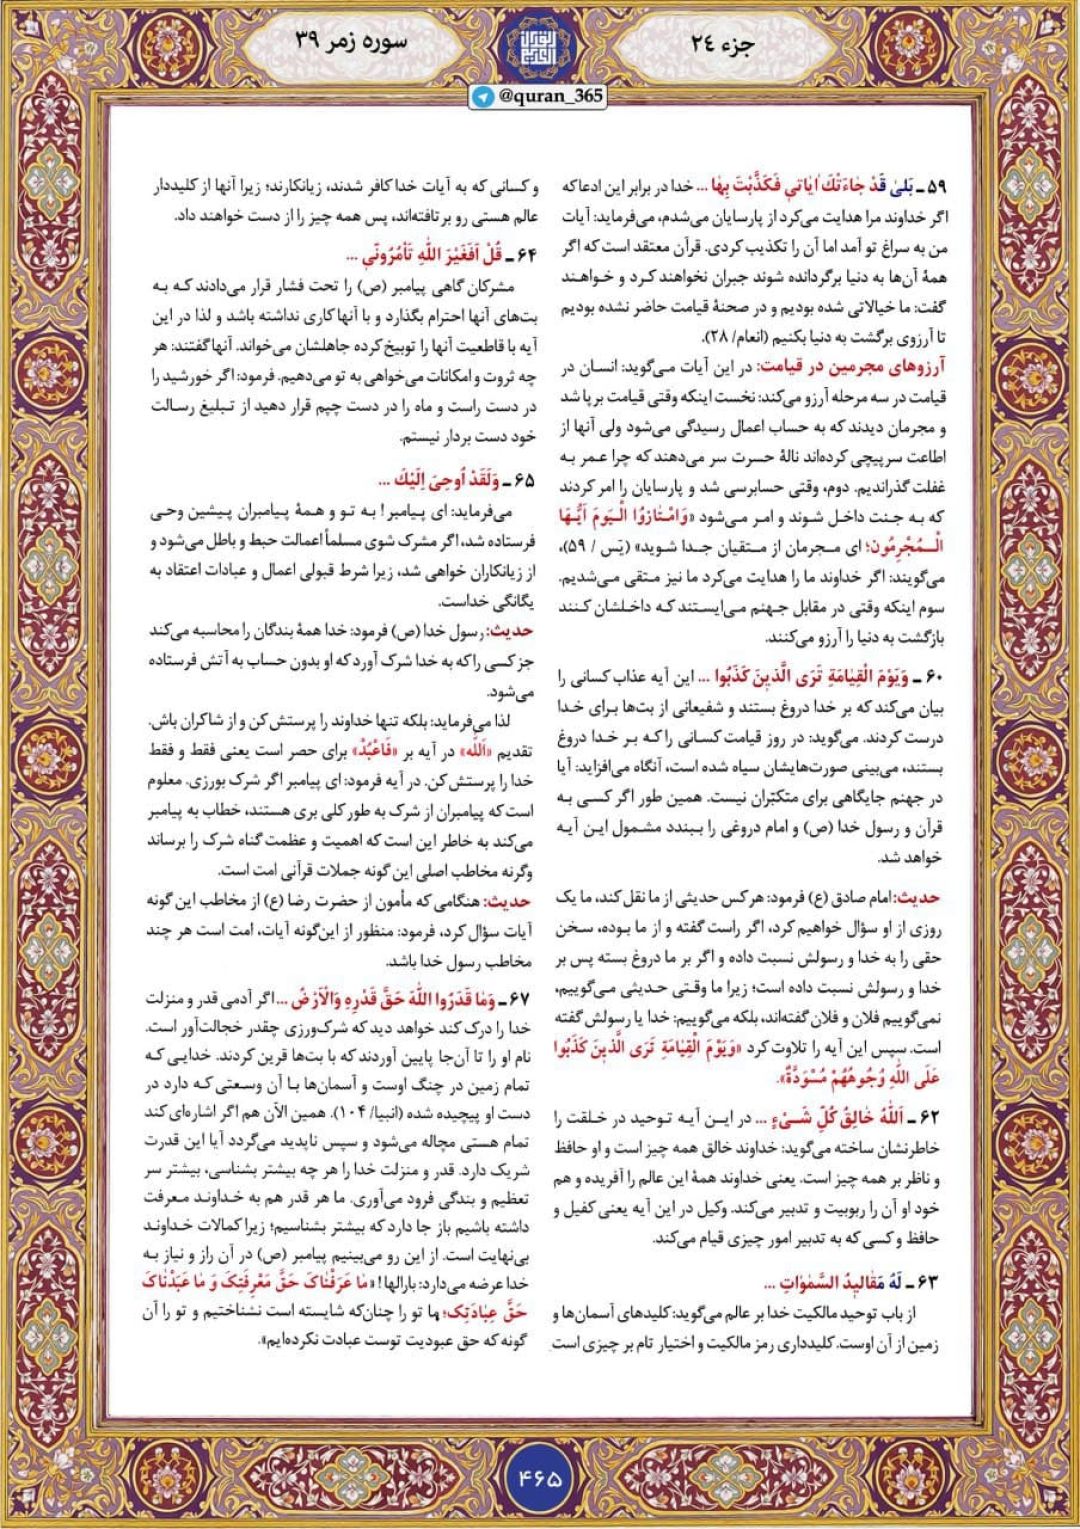 جزء ٢٤
سوره زمر ٣٩
@quran_365
٥٩ ـ بَلىٰ قَدْ جٰاءَتْكَ اٰيٰاتي فَكَذَّبْتَ بِهٰا ... خدا در برابر این ادعا که
اگر خداوند مرا هدایت می‌کرد از پارسایان می‌شدم، می‌فرماید: آیات
من به سراغ تو آمد اما آن را تکذیب کردی. قرآن معتقد است که اگر
همهٔ آن‌ها به دنیا برگردانده شوند جبران نخواهند کرد و خواهند
گفت: ما خیالاتی شده بودیم و در صحنهٔ قیامت حاضر نشده بودیم
تا آرزوی برگشت به دنیا بکنیم (انعام/ ٢٨).
آرزوهای مجرمین در قیامت: در این آیات می‌گوید: انسان در
قیامت در سه مرحله آرزو می‌کند: نخست اینکه وقتی قیامت برپا شد
و مجرمان دیدند که به حساب اعمال رسیدگی می‌شود ولی آنها از
اطاعت سرپیچی کرده‌اند نالهٔ حسرت سر می‌دهند که چرا عمر به
غفلت گذراندیم. دوم، وقتی حسابرسی شد و پارسایان را امر کردند
که به جنت داخل شوند و امر می‌شود «وَامْتٰازُوا الْيَومَ اَيُّهَا
الْمُجْرِمُون؛ ای مجرمان از متقیان جدا شوید» (یٓس / ٥٩)،
می‌گویند: اگر خداوند ما را هدایت می‌کرد ما نیز متقی می‌شدیم.
سوم اینکه وقتی در مقابل جهنم می‌ایستند که داخلشان کنند
بازگشت به دنیا را آرزو می‌کنند.
٦٠ ـ وَيَوْمَ الْقِيٰامَةِ تَرَى الَّذينَ كَذَبُوا ... این آیه عذاب کسانی را
بیان می‌کند که بر خدا دروغ بستند و شفیعانی از بت‌ها برای خدا
درست کردند. می‌گوید: در روز قیامت کسانی را که بر خدا دروغ
بستند، می‌بینی صورت‌هایشان سیاه شده است، آنگاه می‌افزاید: آیا
در جهنم جایگاهی برای متکبّران نیست. همین طور اگر کسی به
قرآن و رسول خدا (ص) و امام دروغی را ببندد مشمول این آیه
خواهد شد.
حدیث: امام صادق (ع) فرمود: هرکس حدیثی از ما نقل کند، ما یک
روزی از او سؤال خواهیم کرد، اگر راست گفته و از ما بوده، سخن
حقی را به خدا و رسولش نسبت داده و اگر بر ما دروغ بسته پس بر
خدا و رسولش نسبت داده است؛ زیرا ما وقتی حدیثی می‌گوییم،
نمی‌گوییم فلان و فلان گفته‌اند، بلکه می‌گوییم: خدا یا رسولش گفته
است. سپس این آیه را تلاوت کرد «وَيَوْمَ الْقِيٰامَةِ تَرَى الَّذينَ كَذَبُوا
عَلَى اللهِ وُجُوهُهُمْ مُسْوَدَّةٌ».
٦٢ ـ اَللهُ خٰالِقُ كُلِّ شَیْءٍ ... در این آیه توحید در خلقت را
خاطرنشان ساخته می‌گوید: خداوند خالق همه چیز است و او حافظ
و ناظر بر همه چیز است. یعنی خداوند همهٔ این عالم را آفریده و هم
خود او آن را ربوبیت و تدبیر می‌کند. وکیل در این آیه یعنی کفیل و
حافظ و کسی که به تدبیر امور چیزی قیام می‌کند.
٦٣ ـ لَهُ مَقٰاليدُ السَّمٰوٰاتِ ...
از باب توحید مالکیت خدا بر عالم می‌گوید: کلیدهای آسمان‌ها و
زمین از آن اوست. کلیدداری رمز مالکیت و اختیار تام بر چیزی است
و کسانی که به آیات خدا کافر شدند، زیانکارند؛ زیرا آنها از کلیددار
عالم هستی رو برتافته‌اند، پس همه چیز را از دست خواهند داد.
٦٤ ـ قُلْ اَفَغَيْرَ اللهِ تَأْمُرُونّي ...
مشرکان گاهی پیامبر (ص) را تحت فشار قرار می‌دادند که به
بت‌های آنها احترام بگذارد و با آنها کاری نداشته باشد و لذا در این
آیه با قاطعیت آنها را توبیخ کرده جاهلشان می‌خواند. آنها گفتند: هر
چه ثروت و امکانات می‌خواهی به تو می‌دهیم. فرمود: اگر خورشید را
در دست راست و ماه را در دست چپم قرار دهید از تبلیغ رسالت
خود دست بردار نیستم.
٦٥ ـ وَلَقَدْ اُوحِیَ اِلَيْكَ ...
می‌فرماید: ای پیامبر! به تو و همهٔ پیامبران پیشین وحی
فرستاده شد، اگر مشرک شوی مسلماً اعمالت حبط و باطل می‌شود و
از زیانکاران خواهی شد، زیرا شرط قبولی اعمال و عبادات اعتقاد به
یگانگی خداست.
حدیث: رسول خدا (ص) فرمود: خدا همهٔ بندگان را محاسبه می‌کند
جز کسی را که به خدا شرک آورد که او بدون حساب به آتش فرستاده
می‌شود.
لذا می‌فرماید: بلکه تنها خداوند را پرستش کن و از شاکران باش.
تقدیم «اَللهَ» در آیه بر «فَاعْبُدْ» برای حصر است یعنی فقط و فقط
خدا را پرستش کن. در آیه فرمود: ای پیامبر اگر شرک بورزی. معلوم
است که پیامبران از شرک به طور کلی بری هستند، خطاب به پیامبر
می‌کند به خاطر این است که اهمیت و عظمت گناه شرک را برساند
وگرنه مخاطب اصلی این گونه جملات قرآنی امت است.
حدیث: هنگامی که مأمون از حضرت رضا (ع) از مخاطب این گونه
آیات سؤال کرد، فرمود: منظور از این‌گونه آیات، امت است هر چند
مخاطب رسول خدا باشد.
٦٧ ـ وَمٰا قَدَرُوا اللهَ حَقَّ قَدْرِهِ وَالْاَرْضُ ... اگر آدمی قدر و منزلت
خدا را درک کند خواهد دید که شرک‌ورزی چقدر خجالت‌آور است.
نام او را تا آن‌جا پایین آوردند که با بت‌ها قرین کردند. خدایی که
تمام زمین در چنگ اوست و آسمان‌ها با آن وسعتی که دارد در
دست او پیچیده شده (انبیا/ ١٠٤). همین الآن هم اگر اشاره‌ای کند
تمام هستی مچاله می‌شود و سپس ناپدید می‌گردد آیا این قدرت
شریک دارد. قدر و منزلت خدا را هر چه بیشتر بشناسی، بیشتر سر
تعظیم و بندگی فرود می‌آوری. ما هر قدر هم به خداوند معرفت
داشته باشیم باز جا دارد که بیشتر بشناسیم؛ زیرا کمالات خداوند
بی‌نهایت است. از این رو می‌بینیم پیامبر (ص) در آن راز و نیاز به
خدا عرضه می‌دارد: بارالها! «مٰا عَرَفْنٰاکَ حَقَّ مَعْرِفَتِکَ وَ مٰا عَبَدْنٰاکَ
حَقَّ عِبٰادَتِک؛ ما تو را چنان‌که شایسته است نشناختیم و تو را آن
گونه که حق عبودیت توست عبادت نکرده‌ایم».
٤٦٥